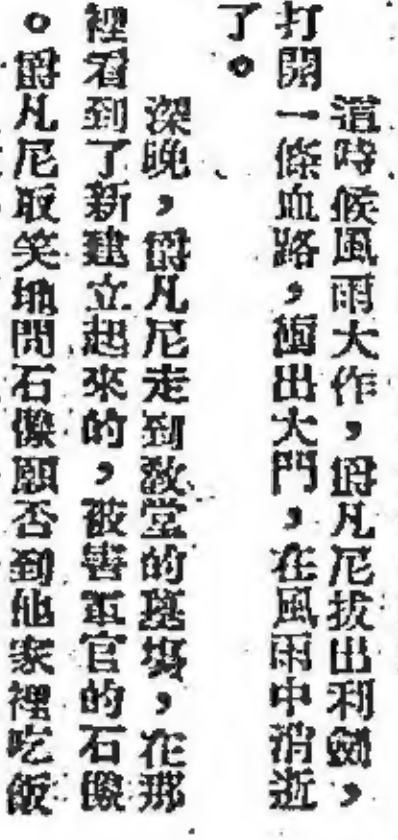 這時候風雨大作，爵凡尼拔出利劍，
打開一條血路，衝出大門，在風雨中消逝
了。
深晚，爵凡尼走到教堂的墓場，在那
裡看到了新建立起來的，被害軍官的石像
。爵凡尼取笑地問石像願否到他家裡吃飯